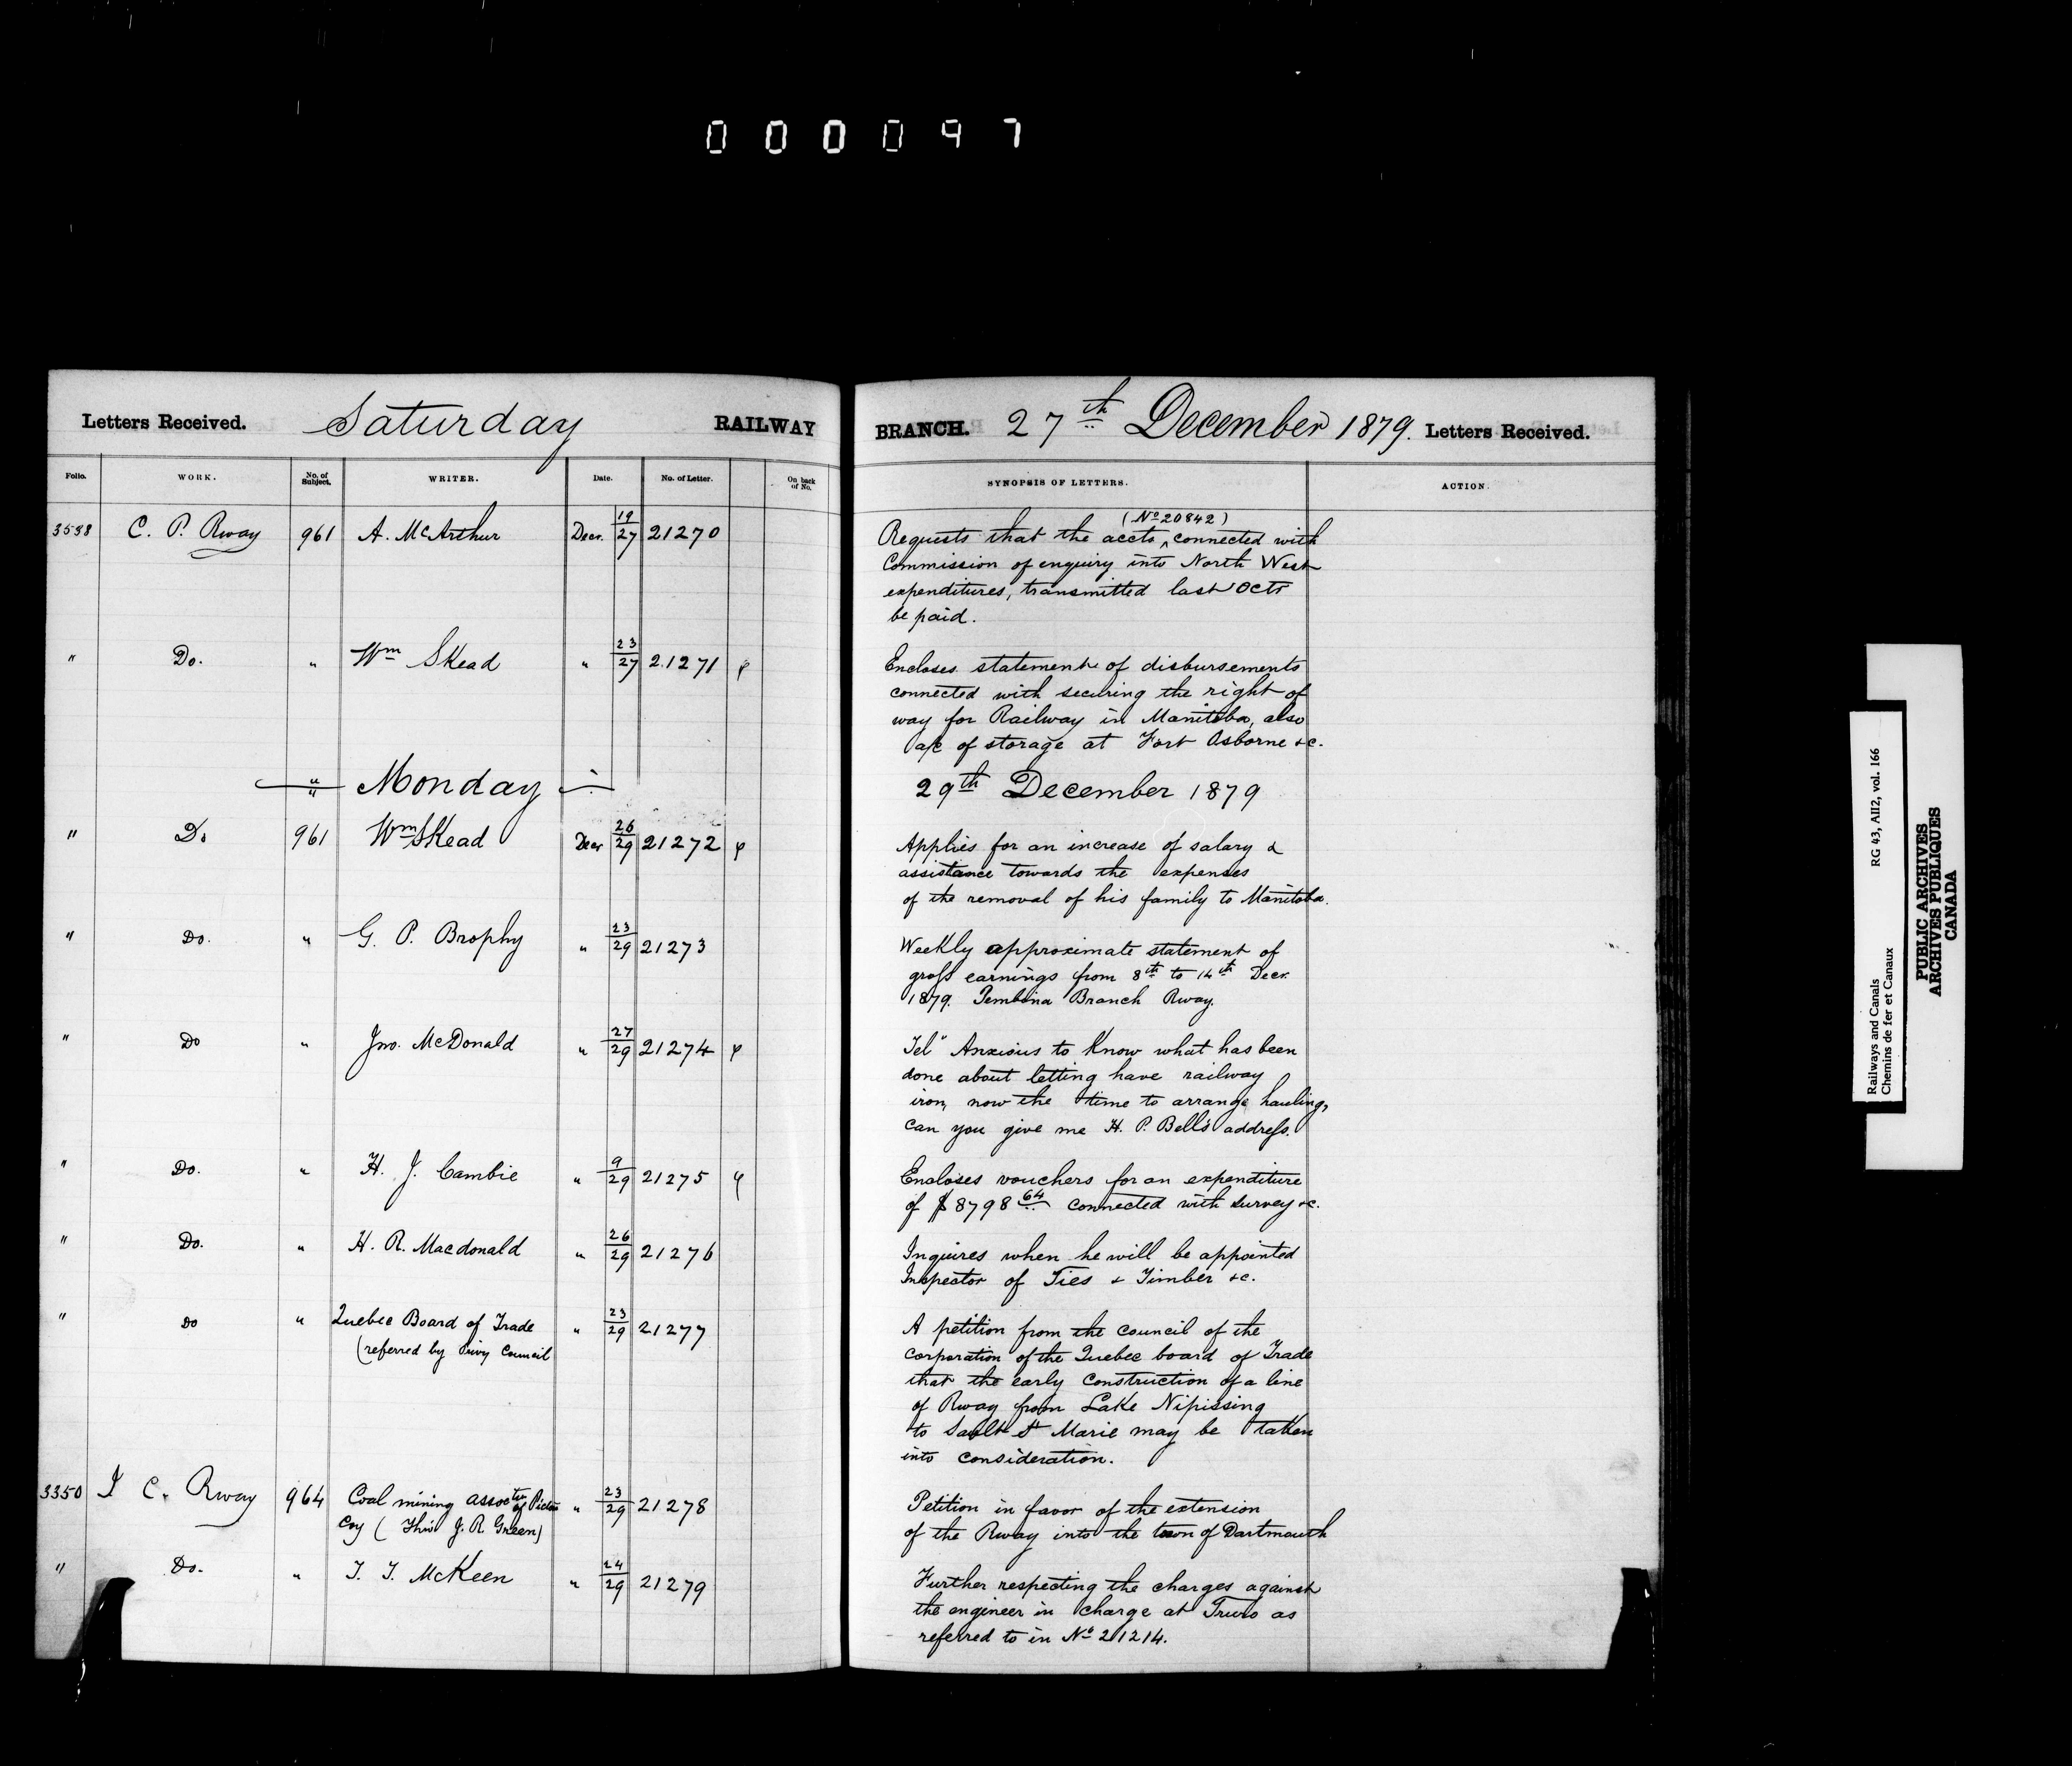 000097
Letters Received. Saturday RAILWAY BRANCH. 27th December 1879. Letters Received.
Folio. WORK. No. of Subject. WRITER. Date. No. of Letter. On back of No. SYNOPSIS OF LETTERS. ACTION.
3538 C. P. Rway 961 A. McArthur Decr. 19/27 21270
(No 20842)
Requests that the accts ^ connected with
Commission of enquiry into North West
expenditures, transmitted last Octr
be paid.
" Do. " Wm Skead " 23/27 21271
Encloses statement of disbursements
connected with securing the right of
way for Railway in Manitoba, also
a/c of storage at Fort Osborne &c.
Monday 29th December 1879
" Do 961 Wm Skead Decr 26/29 21272
Applies for an increase of salary &
assistance towards the expenses
of the removal of his family to Manitoba.
" Do. " G. P. Brophy " 23/29 21273
Weekly approximate statement of
gross earnings from 8th to 14th Decr.
1879. Pembina Branch Rway.
" Do " Jno. McDonald " 27/29 21274
Tel " Anxious to know what has been
done about letting have railway
iron, now the time to arrange hauling,
can you give me H. P. Bell's address.
" Do. " H. J. Cambie " 9/29 21275
Encloses vouchers for an expenditure
of $8798 64 connected with survey &c.
" Do. " H. R. Macdonald " 26/29 21276
Inquires when he will be appointed
Inspector of Ties & Timber &c.
" Do " Quebec Board of Trade " 23/29 21277
(referred by Privy Council
A petition from the council of the
corporation of the Quebec board of Trade
that the early construction of a line
of Rway from Lake Nipissing
to Sault St Marie may be taken
into consideration.
3350 I C. Rway 964 Coal mining assoctn of Pictou " 23/29 21278
Coy ( Thro J. R. Green)
Petition in favor of the extension
of the Rway into the town of Dartmouth
" Do. " T. T. McKeen " 24/29 21279
Further respecting the charges against
the engineer in charge at Truro as
referred to in No 21214.
Railways and Canals RG 43, AII2, vol. 166
Chemins de fer et Canaux
PUBLIC ARCHIVES
ARCHIVES PUBLIQUES
CANADA